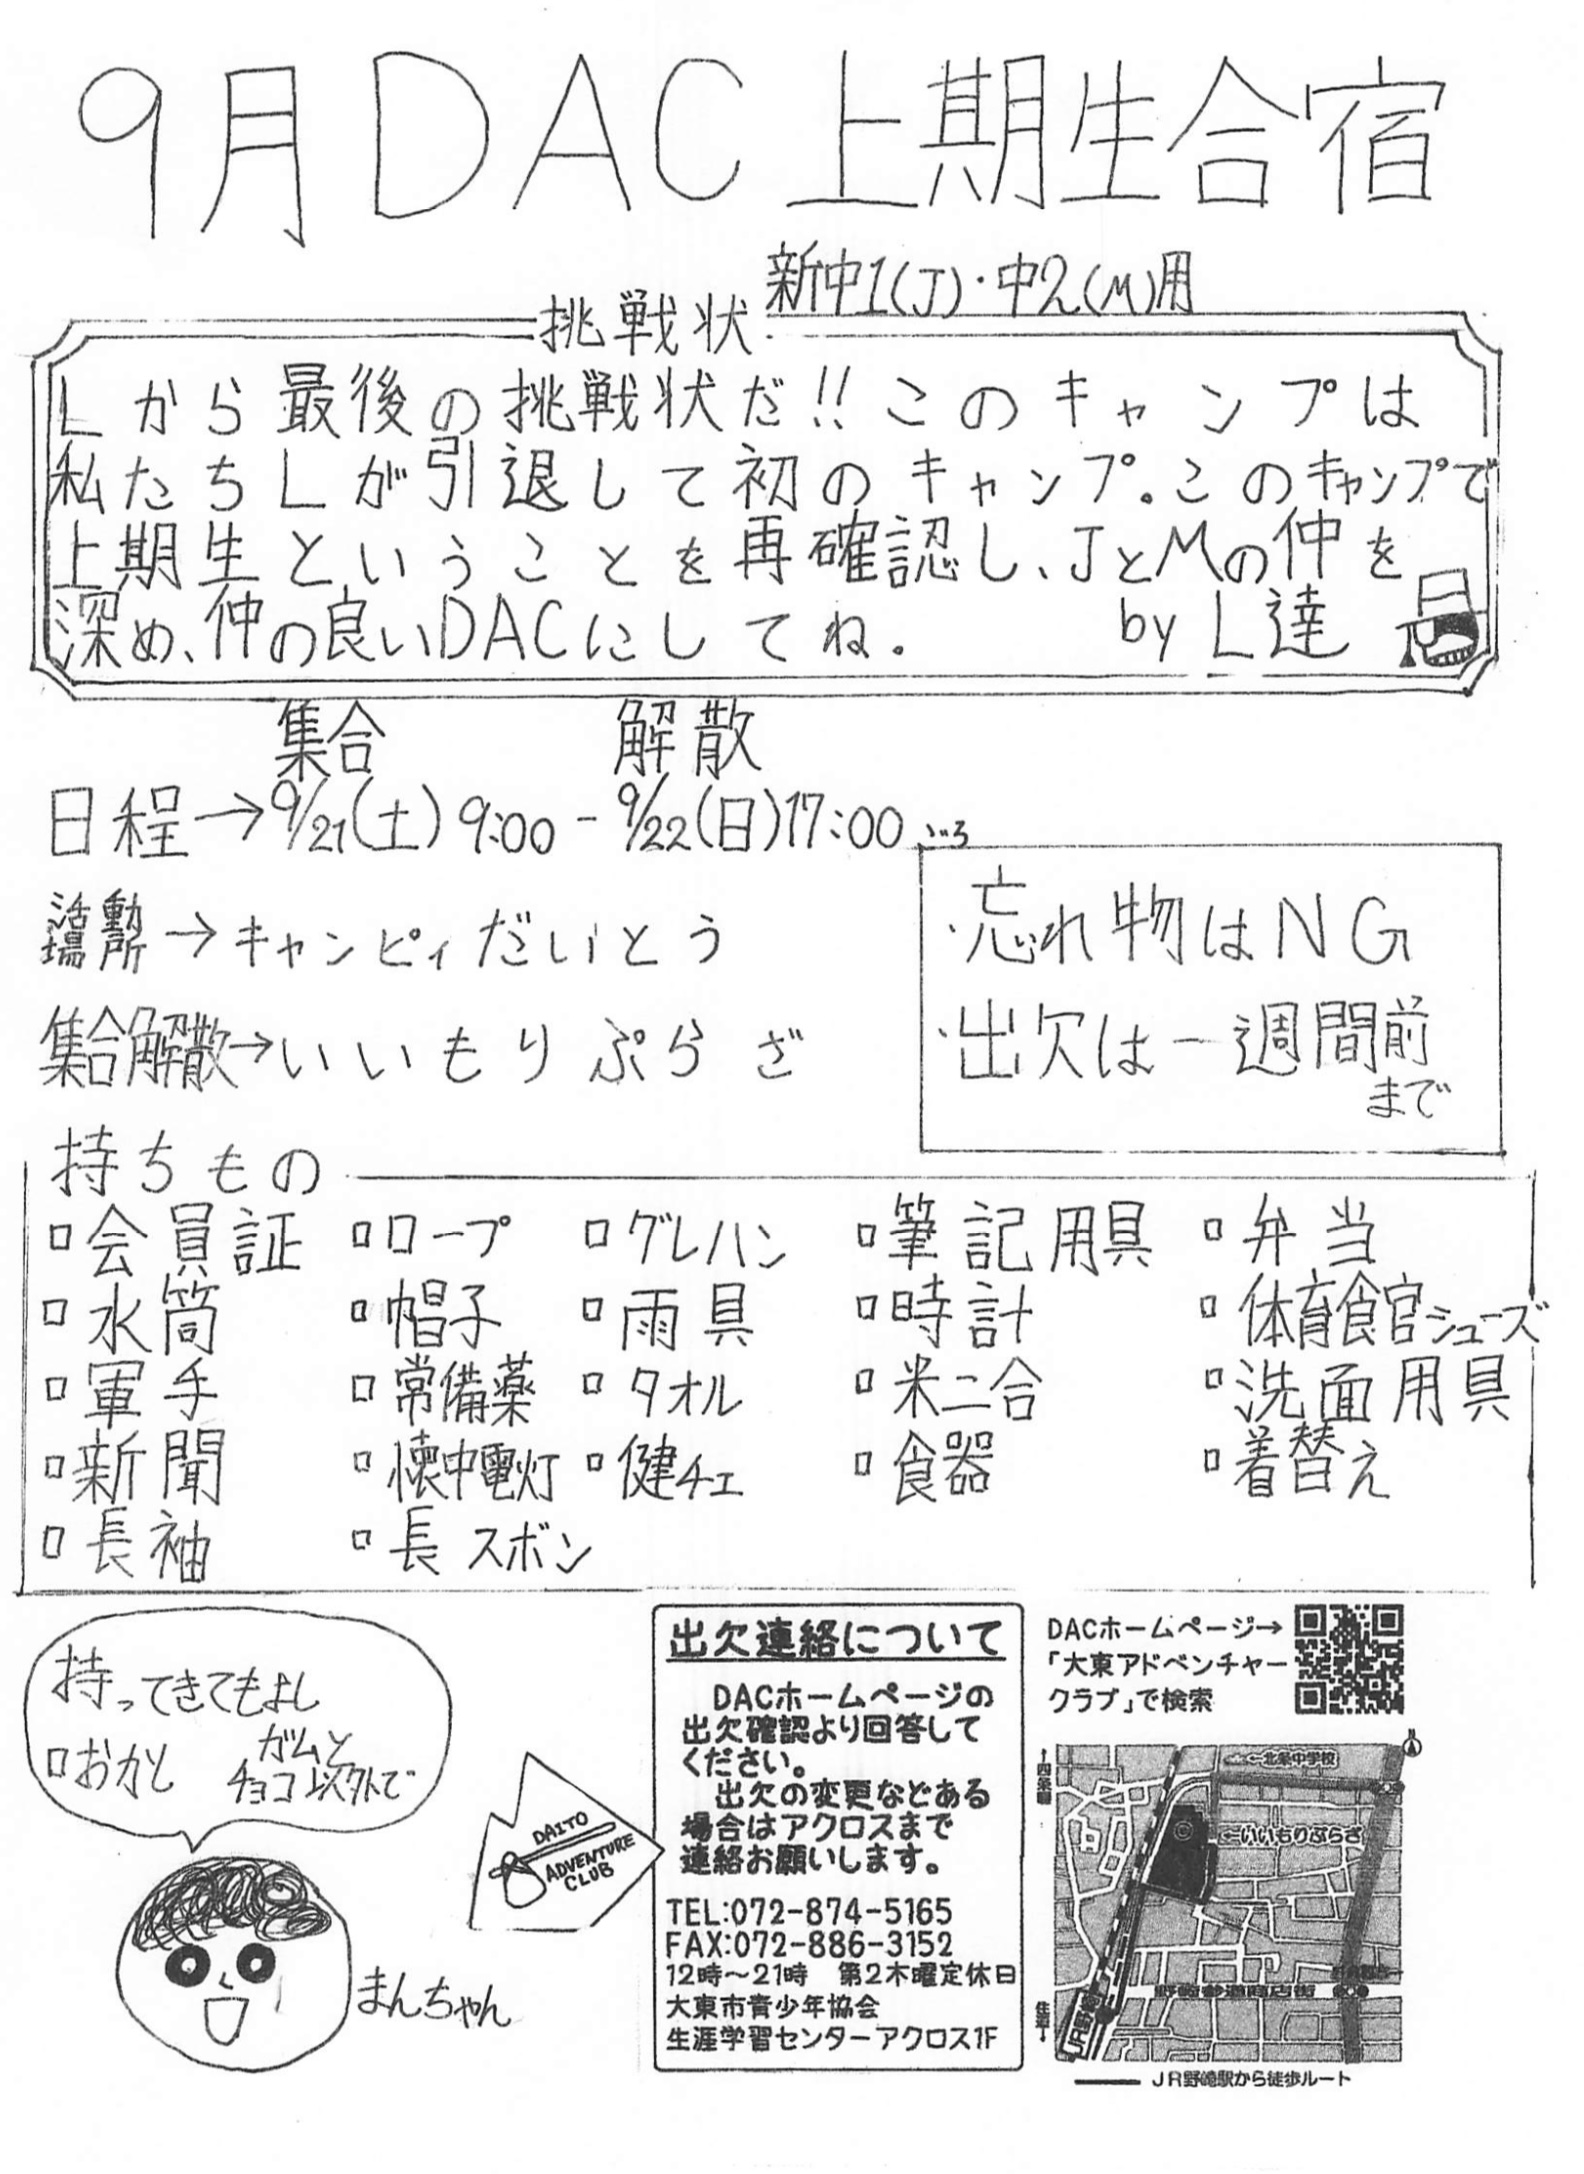 9月DAC上期生合宿
新中1(J)・中2(M)用
挑戦状
Lから最後の挑戦状だ!!このキャンプは
私たちLが引退して初のキャンプ。このキャンプで
上期生ということを再確認し、JとMの仲を
深め、仲の良いDACにしてね。 by L達
集合 解散
日程→9/21(土)9:00-9/22(日)17:00ごろ
活動場所→キャンピィだいとう
集合解散→いいもりぷらざ
・忘れ物はNG
・出欠は一週間前
まで
持ちもの
□会員証 □ロープ □グレハン □筆記用具 □弁当
□水筒 □帽子 □雨具 □時計 □体育館シューズ
□軍手 □常備薬 □タオル □米二合 □洗面用具
□新聞 □懐中電灯 □健チェ □食器 □着替え
□長袖 □長ズボン
持ってきてもよし
□おかし ガムと
チョコ以外で
まんちゃん
DAITO
ADVENTURE
CLUB
出欠連絡について
DACホームページの
出欠確認より回答して
ください。
出欠の変更などある
場合はアクロスまで
連絡お願いします。
TEL:072-874-5165
FAX:072-886-3152
12時～21時 第2木曜定休日
大東市青少年協会
生涯学習センターアクロス1F
DACホームページ→
「大東アドベンチャー
クラブ」で検索
N
←北条中学校
↑四条畷
←いいもりぷらざ
野崎参道商店街
住道↓
JR野崎
JR野崎駅から徒歩ルート